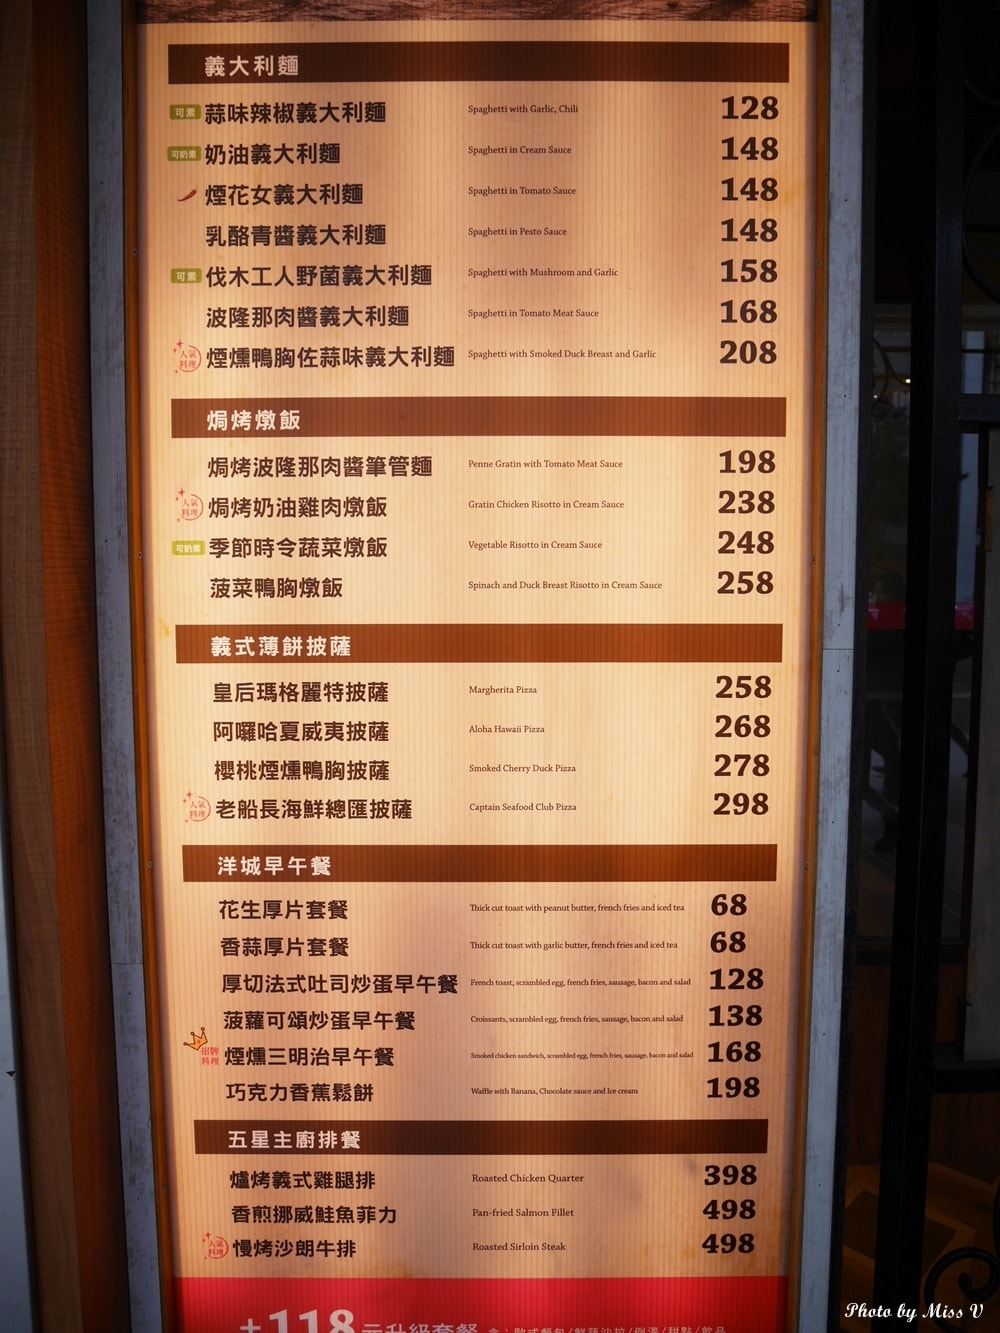 義大利麵
可素 蒜味辣椒義大利麵 Spaghetti with Garlic, Chili 128
可奶素 奶油義大利麵 Spaghetti in Cream Sauce 148
煙花女義大利麵 Spaghetti in Tomato Sauce 148
乳酪青醬義大利麵 Spaghetti in Pesto Sauce 148
可素 伐木工人野菌義大利麵 Spaghetti with Mushroom and Garlic 158
波隆那肉醬義大利麵 Spaghetti in Tomato Meat Sauce 168
人氣料理 煙燻鴨胸佐蒜味義大利麵 Spaghetti with Smoked Duck Breast and Garlic 208
焗烤燉飯
焗烤波隆那肉醬筆管麵 Penne Gratin with Tomato Meat Sauce 198
人氣料理 焗烤奶油雞肉燉飯 Gratin Chicken Risotto in Cream Sauce 238
可奶素 季節時令蔬菜燉飯 Vegetable Risotto in Cream Sauce 248
菠菜鴨胸燉飯 Spinach and Duck Breast Risotto in Cream Sauce 258
義式薄餅披薩
皇后瑪格麗特披薩 Margherita Pizza 258
阿囉哈夏威夷披薩 Aloha Hawaii Pizza 268
櫻桃煙燻鴨胸披薩 Smoked Cherry Duck Pizza 278
人氣料理 老船長海鮮總匯披薩 Captain Seafood Club Pizza 298
洋城早午餐
花生厚片套餐 Thick cut toast with peanut butter, french fries and iced tea 68
香蒜厚片套餐 Thick cut toast with garlic butter, french fries and iced tea 68
厚切法式吐司炒蛋早午餐 French toast, scrambled egg, french fries, sausage, bacon and salad 128
菠蘿可頌炒蛋早午餐 Croissants, scrambled egg, french fries, sausage, bacon and salad 138
招牌料理 煙燻三明治早午餐 Smoked chicken sandwich, scrambled egg, french fries, sausage, bacon and salad 168
巧克力香蕉鬆餅 Waffle with Banana, Chocolate sauce and Ice cream 198
五星主廚排餐
爐烤義式雞腿排 Roasted Chicken Quarter 398
香煎挪威鮭魚菲力 Pan-fried Salmon Fillet 498
人氣料理 慢烤沙朗牛排 Roasted Sirloin Steak 498
+118元升級套餐 含：歐式餐包/鮮蔬沙拉/例湯/甜點/飲品
Photo by Miss V